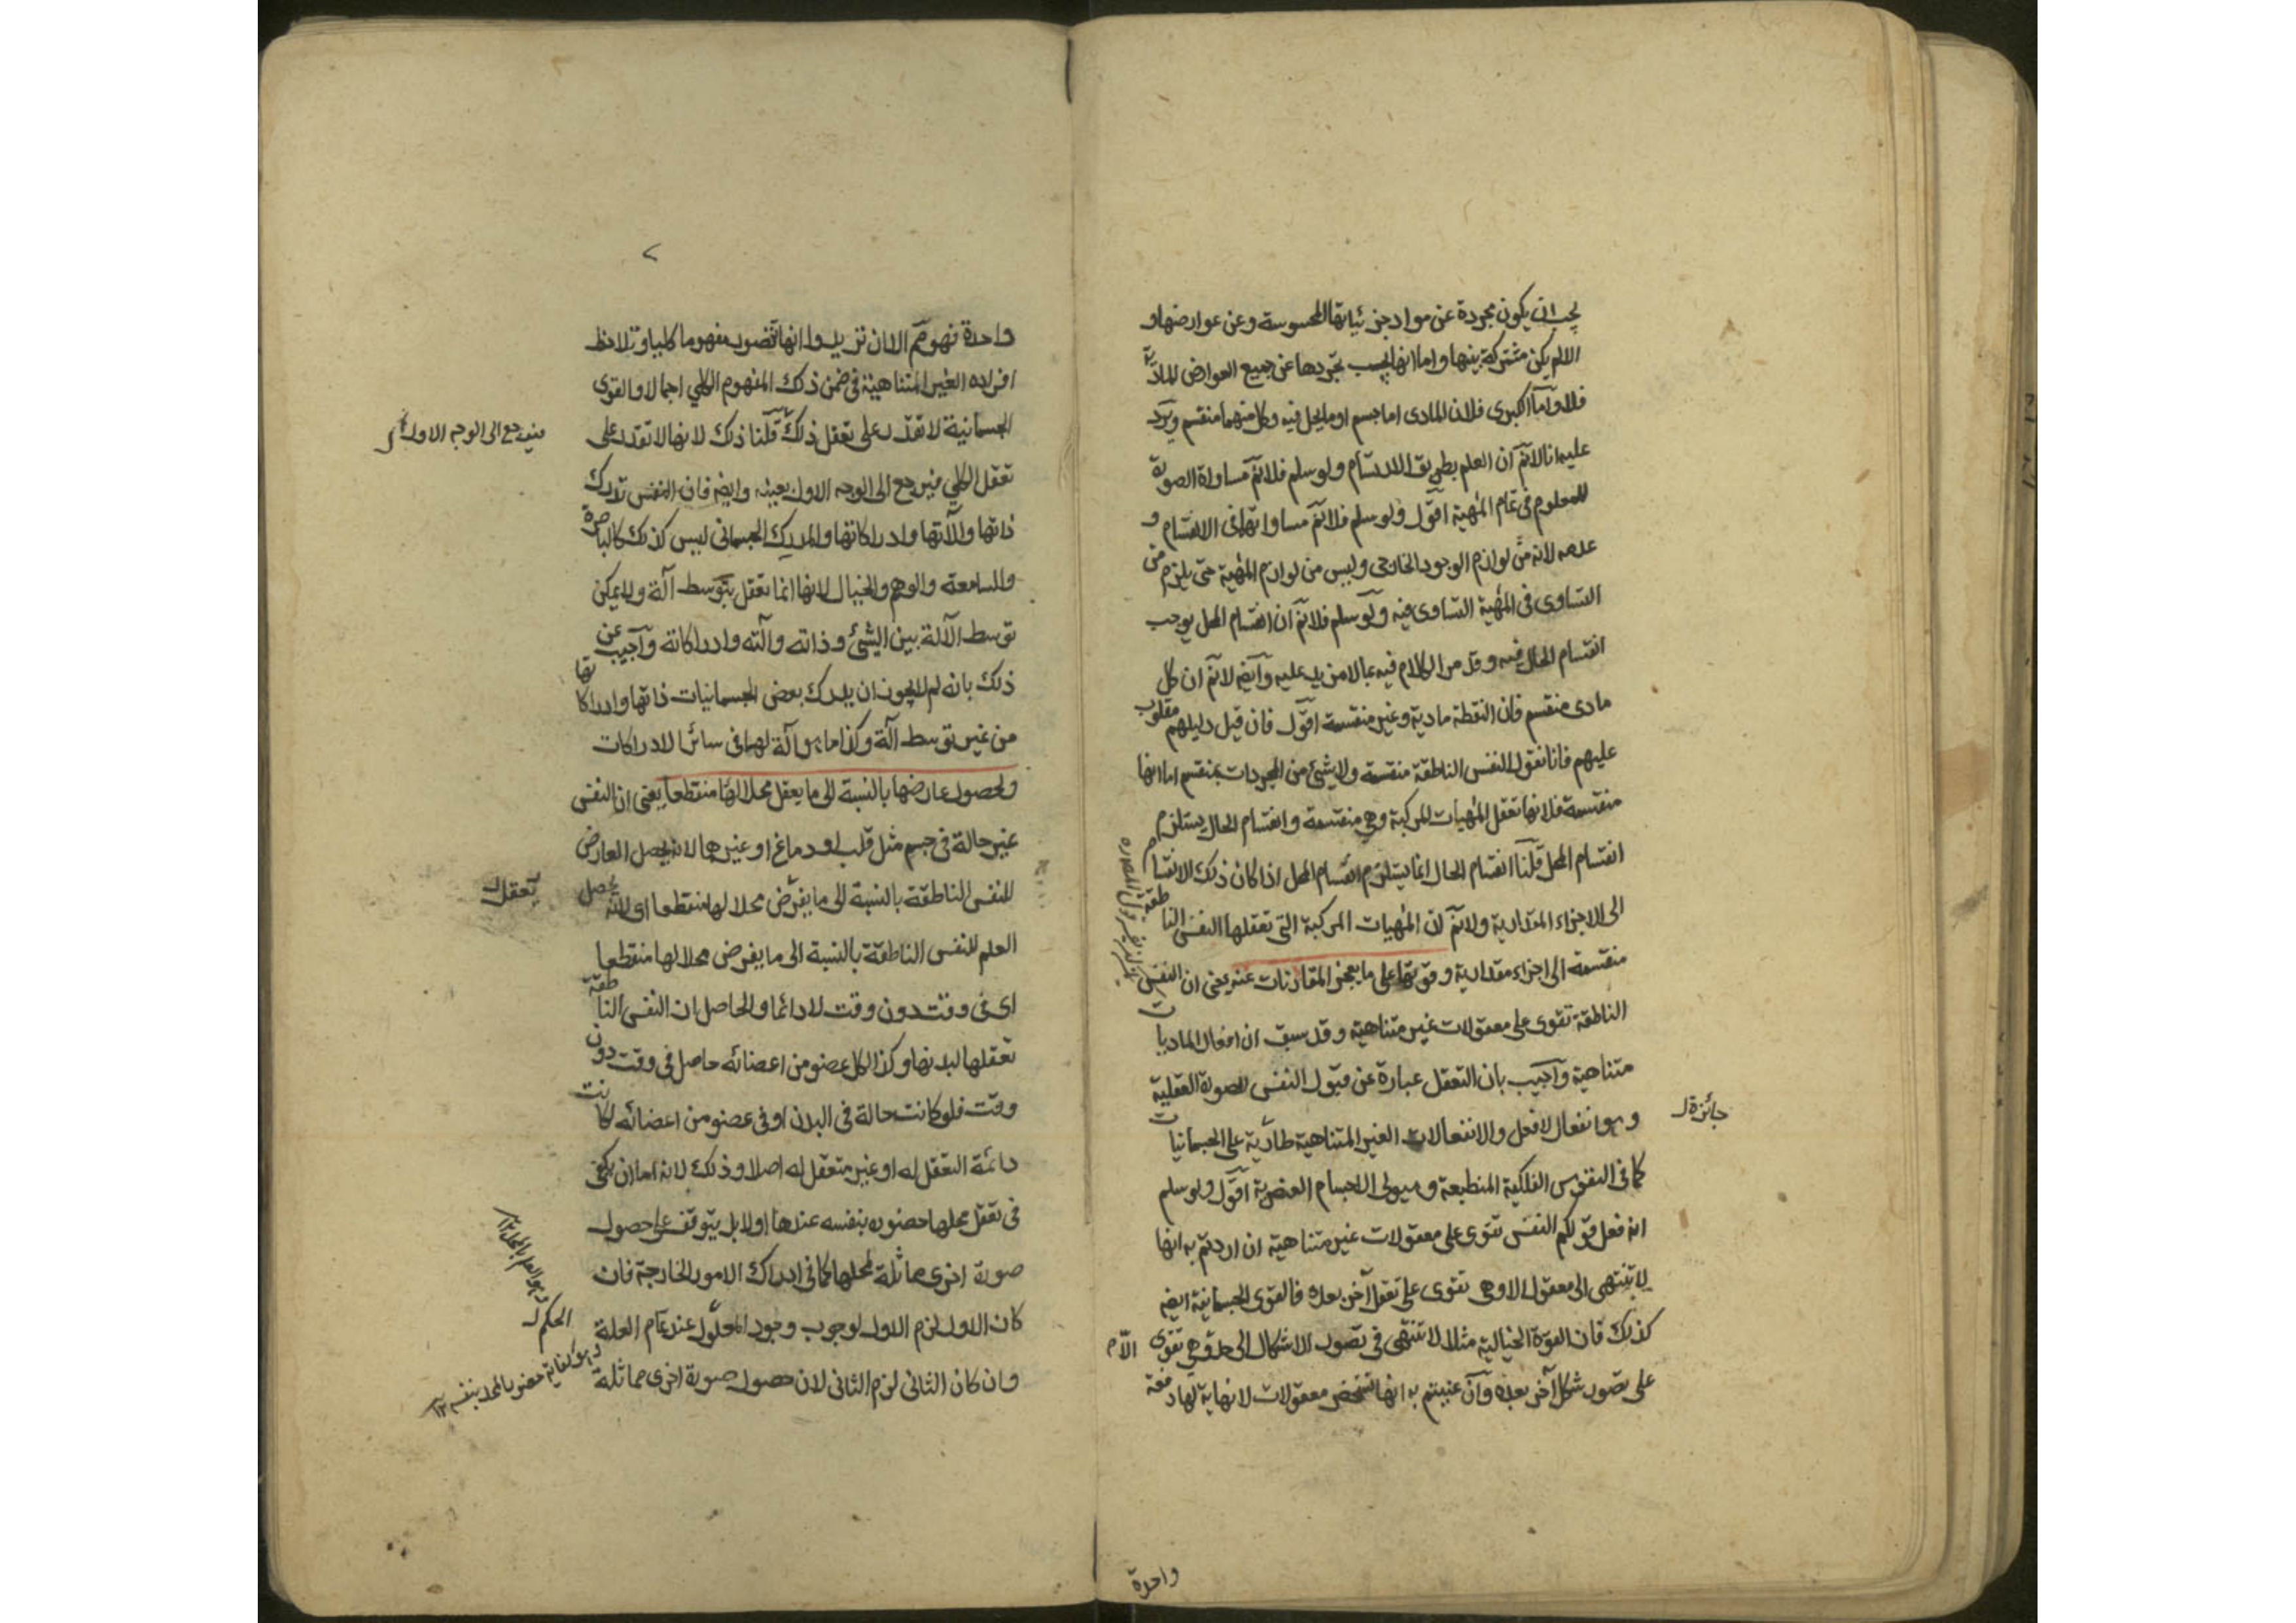 يجب ان يكون مجردة عن مواد جزئياتها المحسوسة وعن عوارضها و
الا لم يكن مشتركة بينها واما انها يجب تجردها عن جميع العوارض المادية
فلا وآما الكبرى فلان المادى اما جسم او ما يحل فيه وكل منهما منقسم ويرد
عليه انا لانم ان العلم بطريق الارتسام ولو سلم فلانم مساواة الصورة
للمعلوم فى تمام المهية اقول ولو سلم فلانم مساواتهما فى الانقسام و
عدمه لانه من لوازم الوجود الخارجى وليس من لوازم المهية حتى يلزم من
التساوى فى المهية التساوى فيه ولو سلم فلانم ان انقسام المحل يوجب
انقسام الحال فيه وقد مر الكلام فيه بما لا مزيد عليه وايضا لانم ان كل
مادى منقسم فان النقطة مادية وغير منقسمة اقول فان قيل دليلهم مقلوب
عليهم فانا نقول النفس الناطقة منقسمة ولا شئ من المجردات بمنقسم اما انها
منقسمة فلانها تعقل المهيات المركبة وهى منقسمة وانقسام الحال يستلزم
انقسام المحل قلنا انقسام الحال انما يستلزم انقسام المحل اذا كان ذلك الانقسام
الى الاجزاء المقدارية ولانم ان المهيات المركبة التى تعقلها النفس الناطقة
منقسمة الى اجزاء مقدارية وقوتها على ما يعجز المقارنات عنه يعنى ان النفس
الناطقة تقوى على معقولات غير متناهية وقد سبق ان افعال الماديات
متناهية وآجيب بان التعقل عبارة عن قبول النفس للصورة العقلية
وهو انفعال لا فعل والانفعالات الغير المتناهية طارية على الجسمانيات
جائزة
كما فى النفوس الفلكية المنطبعة وهيولى الاجسام العنصرية اقول ولو سلم
انه فعل قولكم النفس تقوى على معقولات غير متناهية ان اردتم به انها
لا تنتهى الى معقول الا وهى تقوى على تعقل آخر بعده فالقوى الجسمانية ايضا
كذلك فان القوة الخيالية مثلا لا تنتهى فى تصور الاشكال الى حد وهى تقوى
على تصور شكل آخر بعده وآن عنيتم به انها تستحضر معقولات لا نهاية لها دفعة
واحدة
٧
واحدة فهو مم الا ان تريدوا انها تتصور مفهوما كليا وتلاحظ
افراده الغير المتناهية فى ضمن ذلك المفهوم الكلى اجمالا والقوى
الجسمانية لا تقدر على تعقل ذلك قلنا ذلك لانها لا تقدر على
تعقل الكلى فيرجع الى الوجه الاول بعينه وايضا فان النفس تدرك
فيرجع الى الوجه الاول
ذاتها والآتها وادراكاتها والمدرك الجسمانى ليس كذلك كالباصرة
والسامعة والوهم والخيال لانها انما تعقل بتوسط آلة ولا يمكن
توسط الآلة بين الشئ وذاته وآلته وادراكاته وآجيب عن
ذلك بانه لم لا يجوز ان يدرك بعض الجسمانيات ذاتها وادراكاتها
من غير توسط آلة وكذا ما هو آلة لها فى سائر الادراكات
ولحصول عارضها بالنسبة الى ما يعقل محلا لها منقطعا يعنى ان النفس
غير حالة فى جسم مثل قلب او دماغ او غيرها لانه يحصل العارض
للنفس الناطقة بالنسبة الى ما يفرض محلا لها منقطعا اى لانه يحصل
تعقل
العلم للنفس الناطقة بالنسبة الى ما يفرض محلا لها منقطعا
اى فى وقت دون وقت لا دائما والحاصل ان النفس الناطقة
تعقلها لبدنها وكذا لكل عضو من اعضائه حاصل فى وقت دون
وقت فلو كانت حالة فى البدن او فى عضو من اعضائه لكانت
دائمة التعقل له او غير متعقل له اصلا وذلك لانه اما ان يكفى
فى تعقل محلها حضوره بنفسه عندها اولا بل يتوقف على حصول
صورة اخرى مماثلة لمحلها كما فى ادراك الامور الخارجة فان
وهو العلم بالمحل ١٢
كان الاول لزم الاول لوجوب وجود المعلول عند تمام العلة
الحكم
وان كان الثانى لزم الثانى لان حصول صورة اخرى مماثلة
وهو كفاية حضور المحل بنفسه ١٢